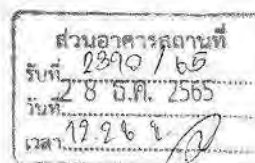 ส่วนอาคารสถานที่
รับที่ 2390 / 65
วันที่ 28 ธ.ค. 2565
เวลา